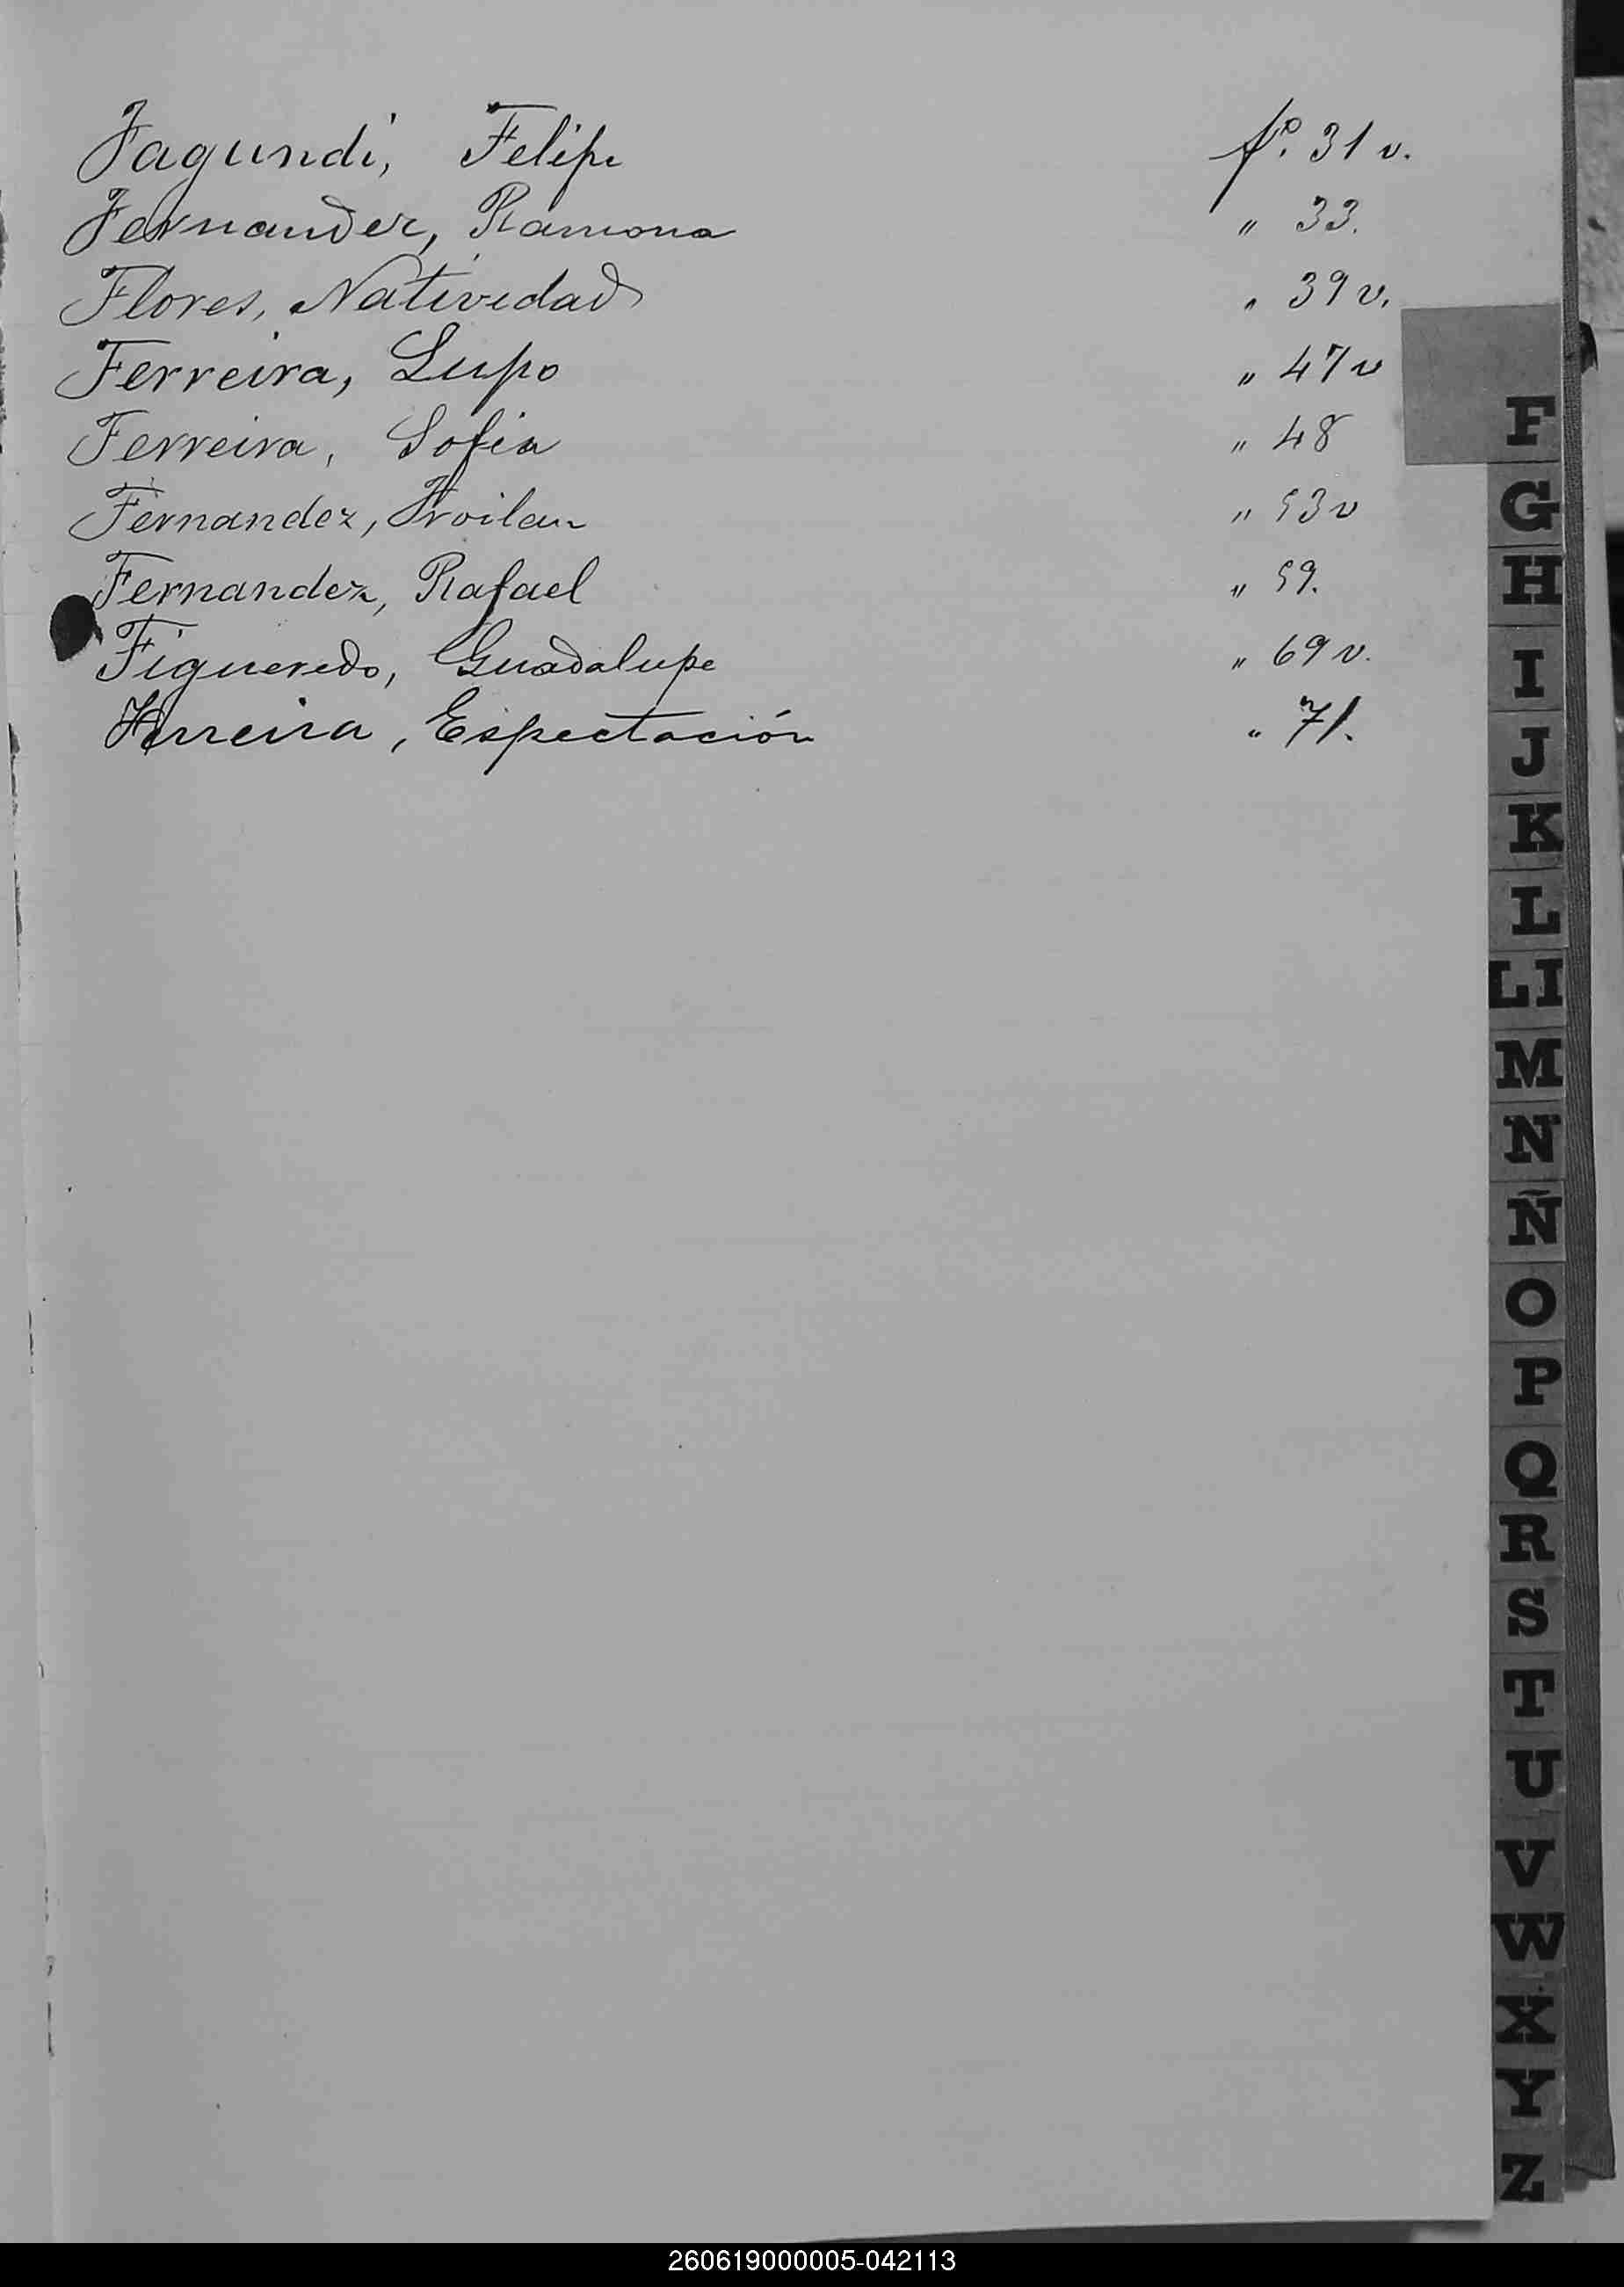 Fagundi, Felipe fº. 31 v.
Fernander, Ramona " 33.
Flores, Natividad " 39 v.
Ferreira, Lupo " 47 v
Ferreira, Sofia " 48
Fernandez, Froilan " 53 v
Fernandez, Rafael " 59.
Figueredo, Guadalupe " 69 v.
Ferreira, Espectación " 71.
F
G
H
I
J
K
L
LI
M
N
Ñ
O
P
Q
R
S
T
U
V
W
X
Y
Z
260619000005-042113